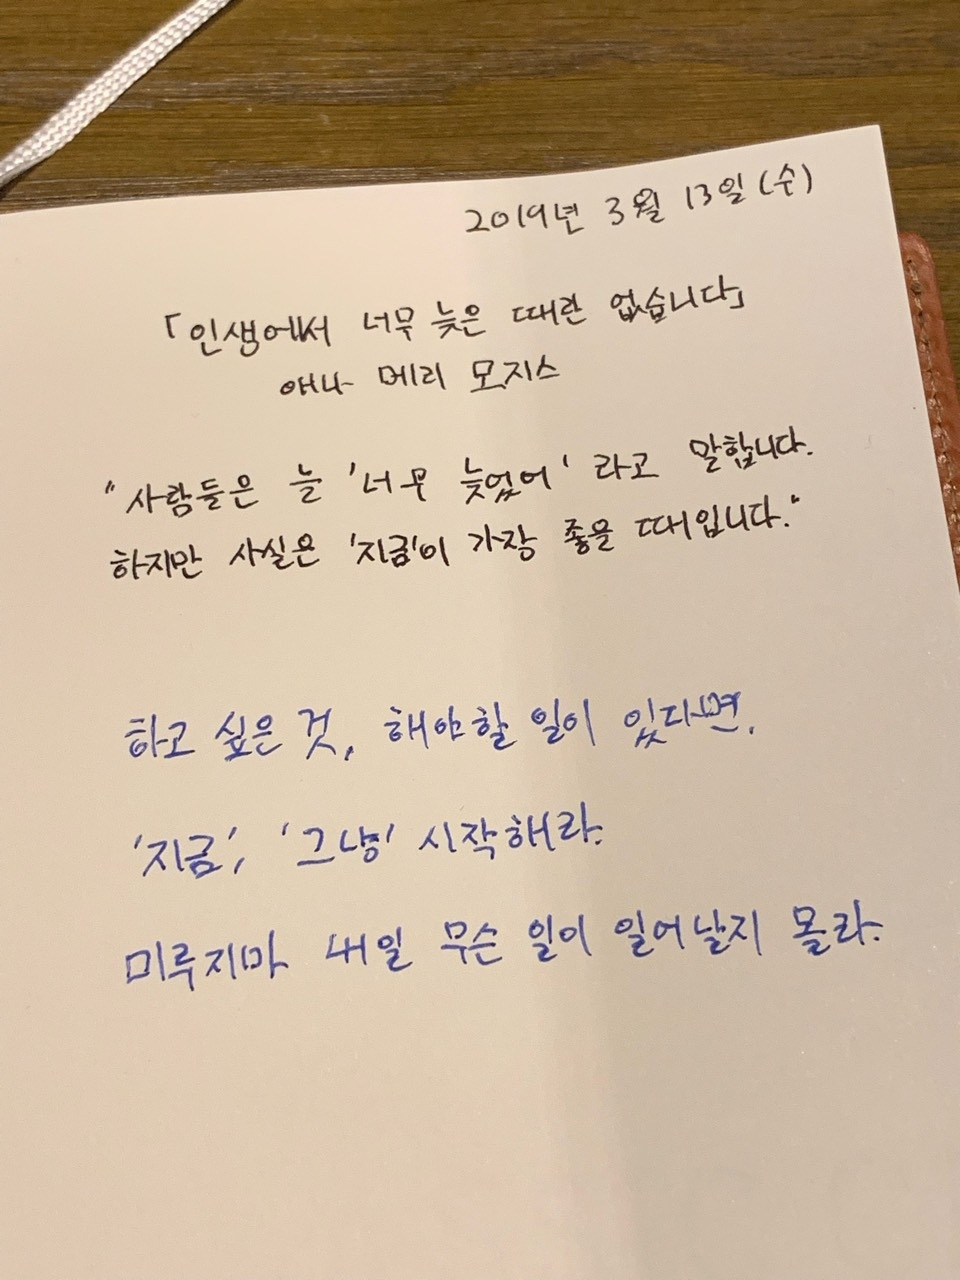 2019년 3월 13일 (수)
「인생에서 너무 늦은 때란 없습니다」
애나 메리 모지스
"사람들은 늘 '너무 늦었어' 라고 말합니다.
하지만 사실은 '지금'이 가장 좋을 때입니다."
하고 싶은 것, 해야할 일이 있다면,
'지금', '그냥' 시작해라.
미루지마 내일 무슨 일이 일어날지 몰라.